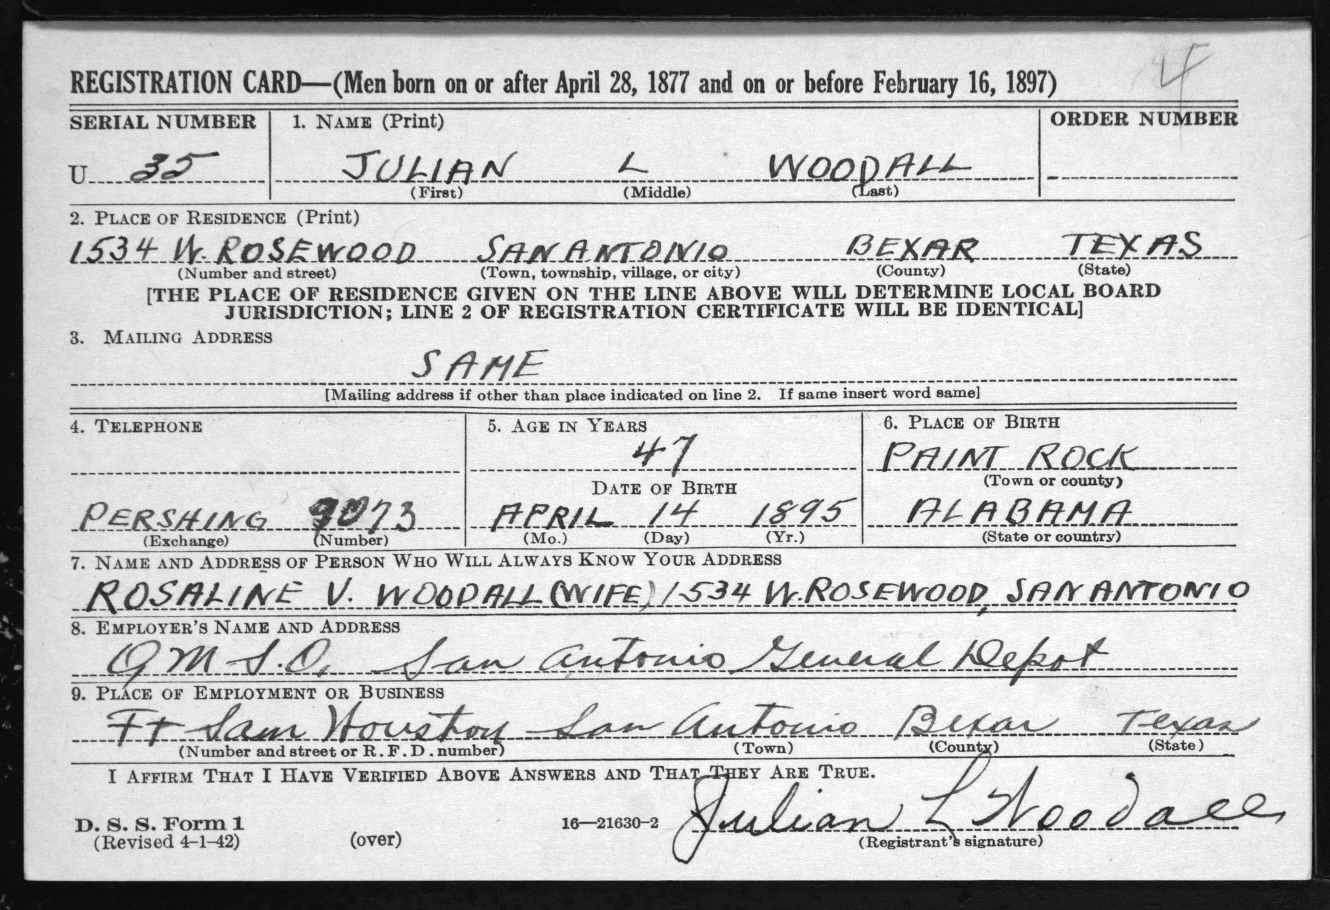 4
REGISTRATION CARD—(Men born on or after April 28, 1877 and on or before February 16, 1897)
SERIAL NUMBER 1. NAME (Print) ORDER NUMBER
U 35 JULIAN L WOODALL
(First) (Middle) (Last)
2. PLACE OF RESIDENCE (Print)
1534 W. ROSEWOOD SAN ANTONIO BEXAR TEXAS
(Number and street) (Town, township, village, or city) (County) (State)
[THE PLACE OF RESIDENCE GIVEN ON THE LINE ABOVE WILL DETERMINE LOCAL BOARD
JURISDICTION; LINE 2 OF REGISTRATION CERTIFICATE WILL BE IDENTICAL]
3. MAILING ADDRESS
SAME
[Mailing address if other than place indicated on line 2. If same insert word same]
4. TELEPHONE 5. AGE IN YEARS 6. PLACE OF BIRTH
47 PAINT ROCK
(Town or county)
DATE OF BIRTH
PERSHING 9073 APRIL 14 1895 ALABAMA
(Exchange) (Number) (Mo.) (Day) (Yr.) (State or country)
7. NAME AND ADDRESS OF PERSON WHO WILL ALWAYS KNOW YOUR ADDRESS
ROSALINE V. WOODALL (WIFE) 1534 W. ROSEWOOD, SAN ANTONIO
8. EMPLOYER'S NAME AND ADDRESS
QMSO, San Antonio General Depot
9. PLACE OF EMPLOYMENT OR BUSINESS
Ft Sam Houston San Antonio Bexar Texas
(Number and street or R. F. D. number) (Town) (County) (State)
I AFFIRM THAT I HAVE VERIFIED ABOVE ANSWERS AND THAT THEY ARE TRUE.
Julian L Woodall
D. S. S. Form 1 16—21630-2
(Revised 4-1-42) (over) (Registrant's signature)